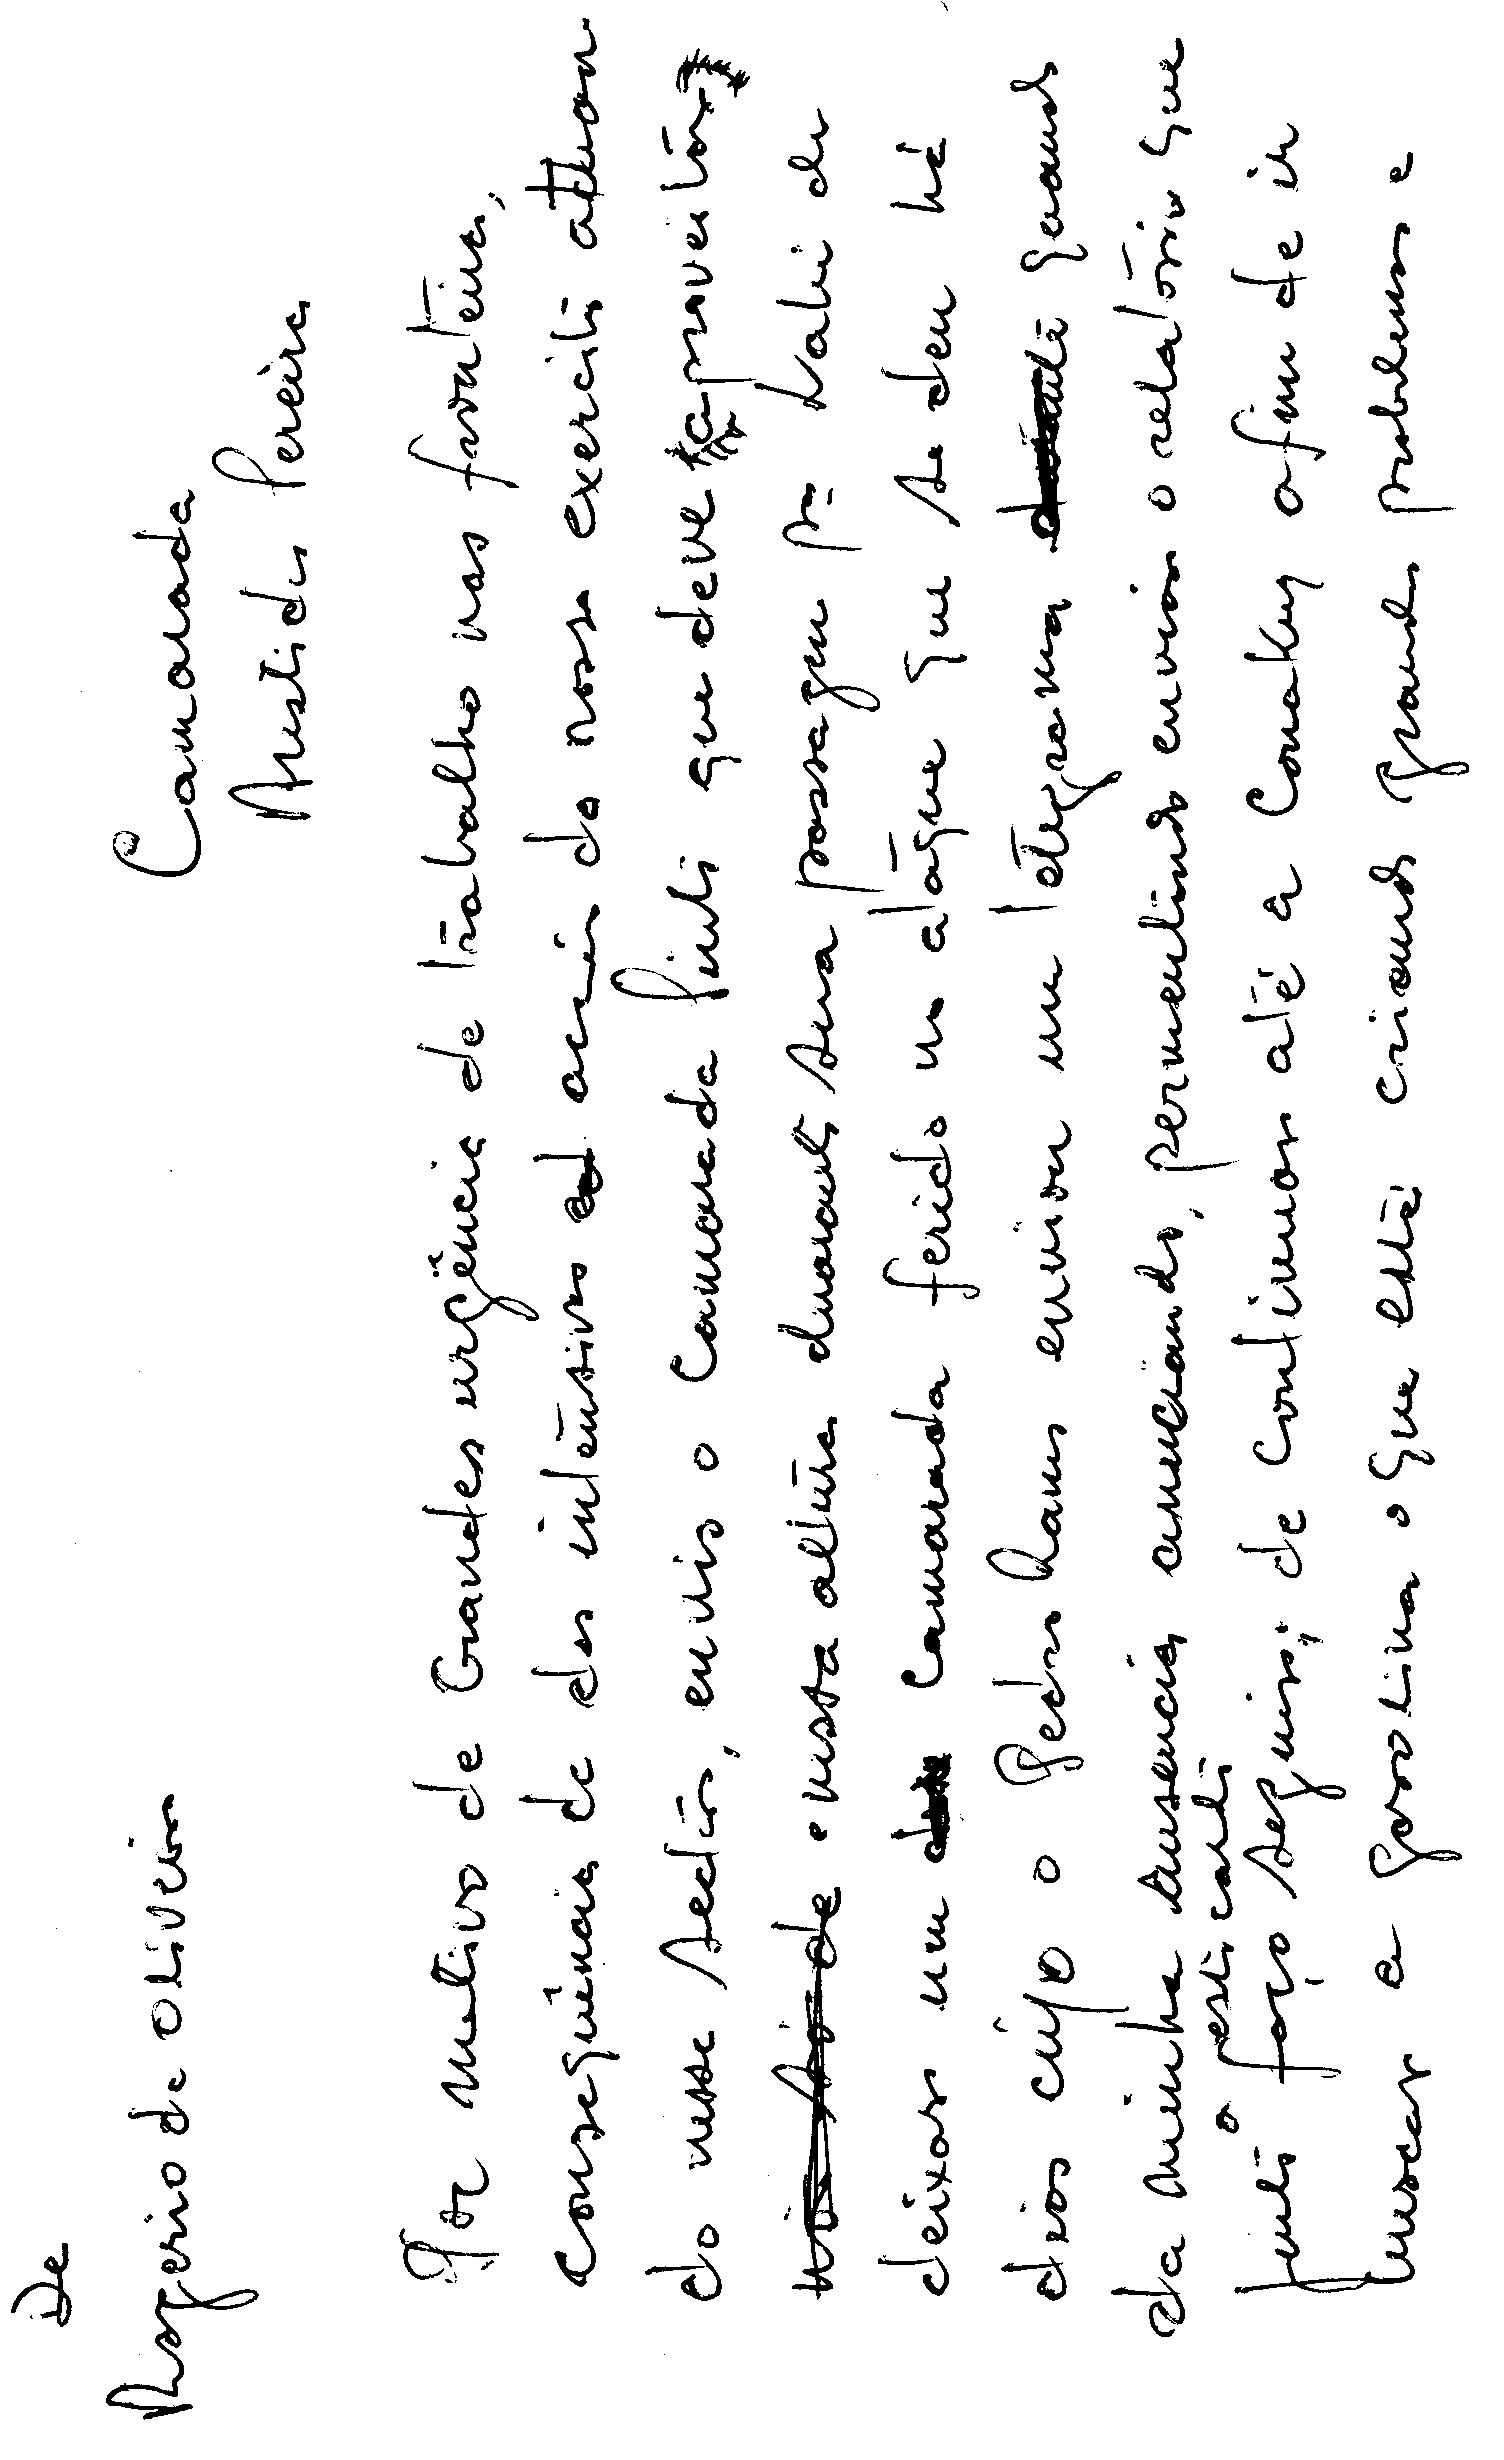 De
Rogerio de Oliveira
Camarada
Aristides Pereira
Por motivo de Grandes urgência de trabalho nas fronteira,
consequência de dos intensivos acção do nosso exercito atuan
do nesse sector, envio o Camarada Pinto que deve aproveitar
e nesta altura durante sua passagem pª Labé de
deixar um Camarada ferido no ataque que se deu há
dias cujo o Pedro Ramos enviou um telegrama quando
da minha ausencia anunciando, permentindo enviar o relatório que
o esticardo
junto faço seguir; de continuar até a Conakry afim de ir
buscar a gasolina o que está criando grandes problemas e